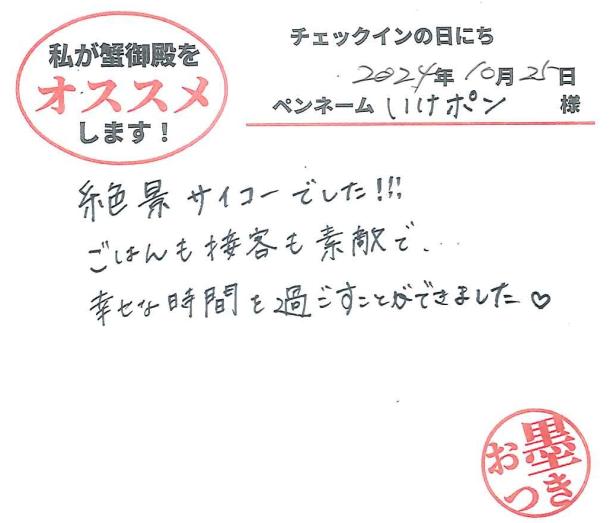 私が蟹御殿を
オススメ
します！
チェックインの日にち
2024年10月25日
ペンネーム いけポン 様
絶景サイコーでした!!!
ごはんも接客も素敵で...
幸せな時間を過ごすことができました♡
お墨
つき